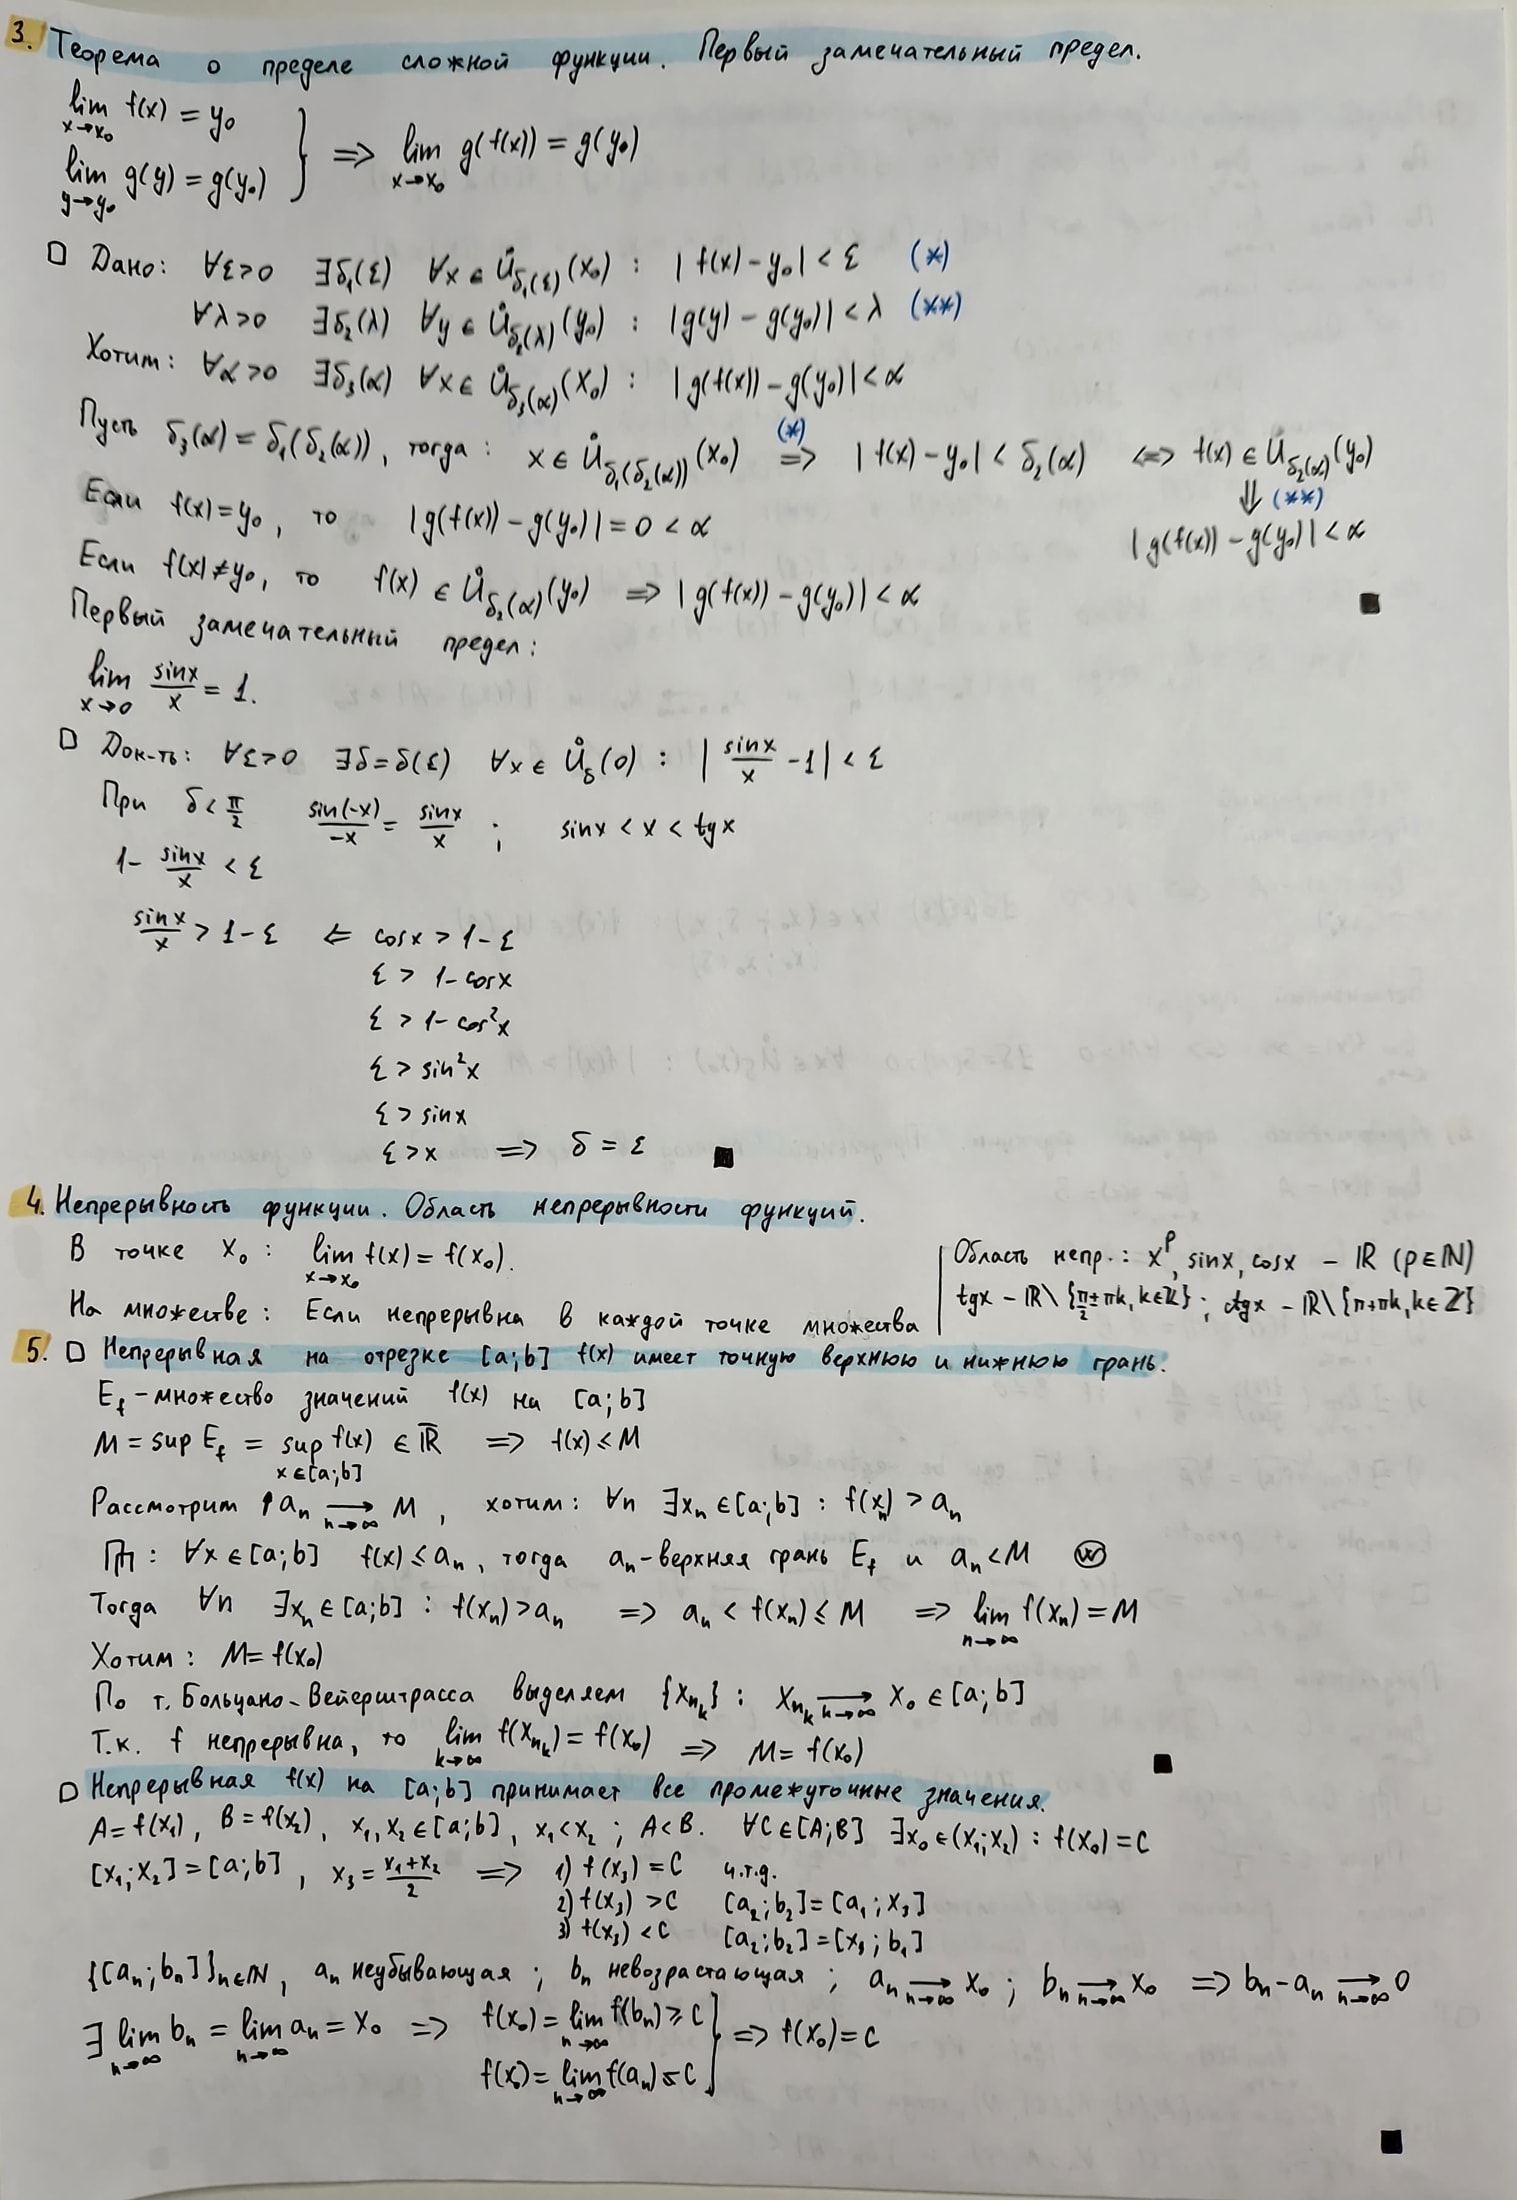 3. Теорема о пределе сложной функции. Первый замечательный предел.
lim f(x) = y₀
x→x₀
lim g(y) = g(y₀) } ⟹ lim g(f(x)) = g(y₀)
y→y₀ x→x₀
□ Дано: ∀ε>0 ∃δ₁(ε) ∀x ∈ Ů_δ₁(ε)(x₀) : |f(x) - y₀| < ε (*)
∀λ>0 ∃δ₂(λ) ∀y ∈ Ů_δ₂(λ)(y₀) : |g(y) - g(y₀)| < λ (**)
Хотим: ∀α>0 ∃δ₃(α) ∀x ∈ Ů_δ₃(α)(x₀) : |g(f(x)) - g(y₀)| < α
Пусть δ₃(α) = δ₁(δ₂(α)), тогда: x ∈ Ů_δ₁(δ₂(α))(x₀) ⟹(*) |f(x) - y₀| < δ₂(α) ⟺ f(x) ∈ U_δ₂(α)(y₀)
⇓ (**)
Если f(x) = y₀, то |g(f(x)) - g(y₀)| = 0 < α |g(f(x)) - g(y₀)| < α
Если f(x) ≠ y₀, то f(x) ∈ Ů_δ₂(α)(y₀) ⟹ |g(f(x)) - g(y₀)| < α ■
Первый замечательный предел:
lim sinx/x = 1.
x→0
□ Док-ть: ∀ε>0 ∃δ=δ(ε) ∀x ∈ Ů_δ(0) : |sinx/x - 1| < ε
При δ < π/2 sin(-x)/-x = sinx/x ; sinx < x < tgx
1 - sinx/x < ε
sinx/x > 1-ε ⇐ cosx > 1-ε
ε > 1-cosx
ε > 1-cos²x
ε > sin²x
ε > sinx
ε > x ⟹ δ = ε ■
4. Непрерывность функции. Область непрерывности функций.
В точке x₀: lim f(x) = f(x₀).
x→x₀
На множестве: Если непрерывна в каждой точке множества
Область непр.: x^p, sinx, cosx - ℝ (p∈ℕ)
tgx - ℝ\{π/2±πk, k∈ℤ}; ctgx - ℝ\{π+πk, k∈ℤ}
5. □ Непрерывная на отрезке [a;b] f(x) имеет точную верхнюю и нижнюю грань.
E_f - множество значений f(x) на [a;b]
M = sup E_f = sup f(x) ∈ ℝ̅ ⟹ f(x) ≤ M
x∈[a;b]
Рассмотрим ↑a_n ⟶ M, хотим: ∀n ∃x_n ∈ [a;b] : f(x_n) > a_n
n→∞
ПП: ∀x ∈ [a;b] f(x) ≤ a_n, тогда a_n - верхняя грань E_f и a_n < M Ⓦ
Тогда ∀n ∃x_n ∈ [a;b] : f(x_n) > a_n ⟹ a_n < f(x_n) ≤ M ⟹ lim f(x_n) = M
n→∞
Хотим: M = f(x₀)
По т. Больцано-Вейерштрасса выделяем {x_n_k} : x_n_k ⟶ x₀ ∈ [a;b]
n→∞
Т.к. f непрерывна, то lim f(x_n_k) = f(x₀) ⟹ M = f(x₀) ■
k→∞
□ Непрерывная f(x) на [a;b] принимает все промежуточные значения.
A = f(x₁), B = f(x₂), x₁,x₂ ∈ [a;b], x₁ < x₂ ; A < B. ∀C ∈ [A;B] ∃x₀ ∈ (x₁;x₂) : f(x₀) = C
[x₁;x₂] = [a;b], x₃ = x₁+x₂/2 ⟹ 1) f(x₃) = C ч.т.д.
2) f(x₃) > C [a₂;b₂] = [a₁;x₃]
3) f(x₃) < C [a₂;b₂] = [x₃;b₁]
{[a_n;b_n]}n∈ℕ, a_n неубывающая; b_n невозрастающая; a_n ⟶ x₀; b_n ⟶ x₀ ⟹ b_n - a_n ⟶ 0
n→∞ n→∞ n→∞
∃ lim b_n = lim a_n = x₀ ⟹ f(x₀) = lim f(b_n) ≥ C } ⟹ f(x₀) = C
n→∞ n→∞ n→∞
f(x₀) = lim f(a_n) ≤ C
n→∞
■